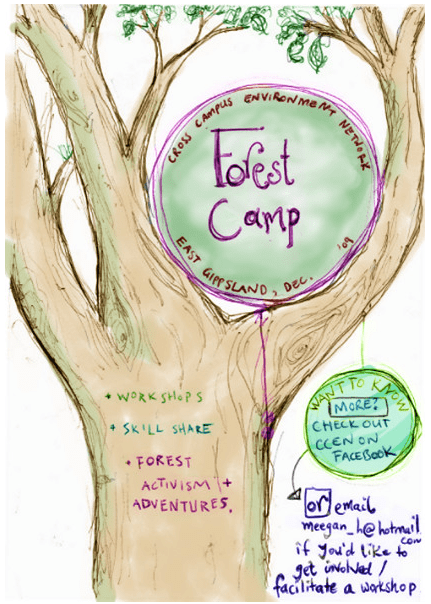 CROSS CAMPUS ENVIRONMENT NETWORK
Forest
Camp
EAST GIPPSLAND, DEC. '09
+ WORKSHOPS
+ SKILL SHARE
+ FOREST
ACTIVISM +
ADVENTURES.
WANT TO KNOW
MORE?
CHECK OUT
CCEN ON
FACEBOOK
or email
meegan_h@hotmail.com
if you'd like to
get involved/
facilitate a workshop